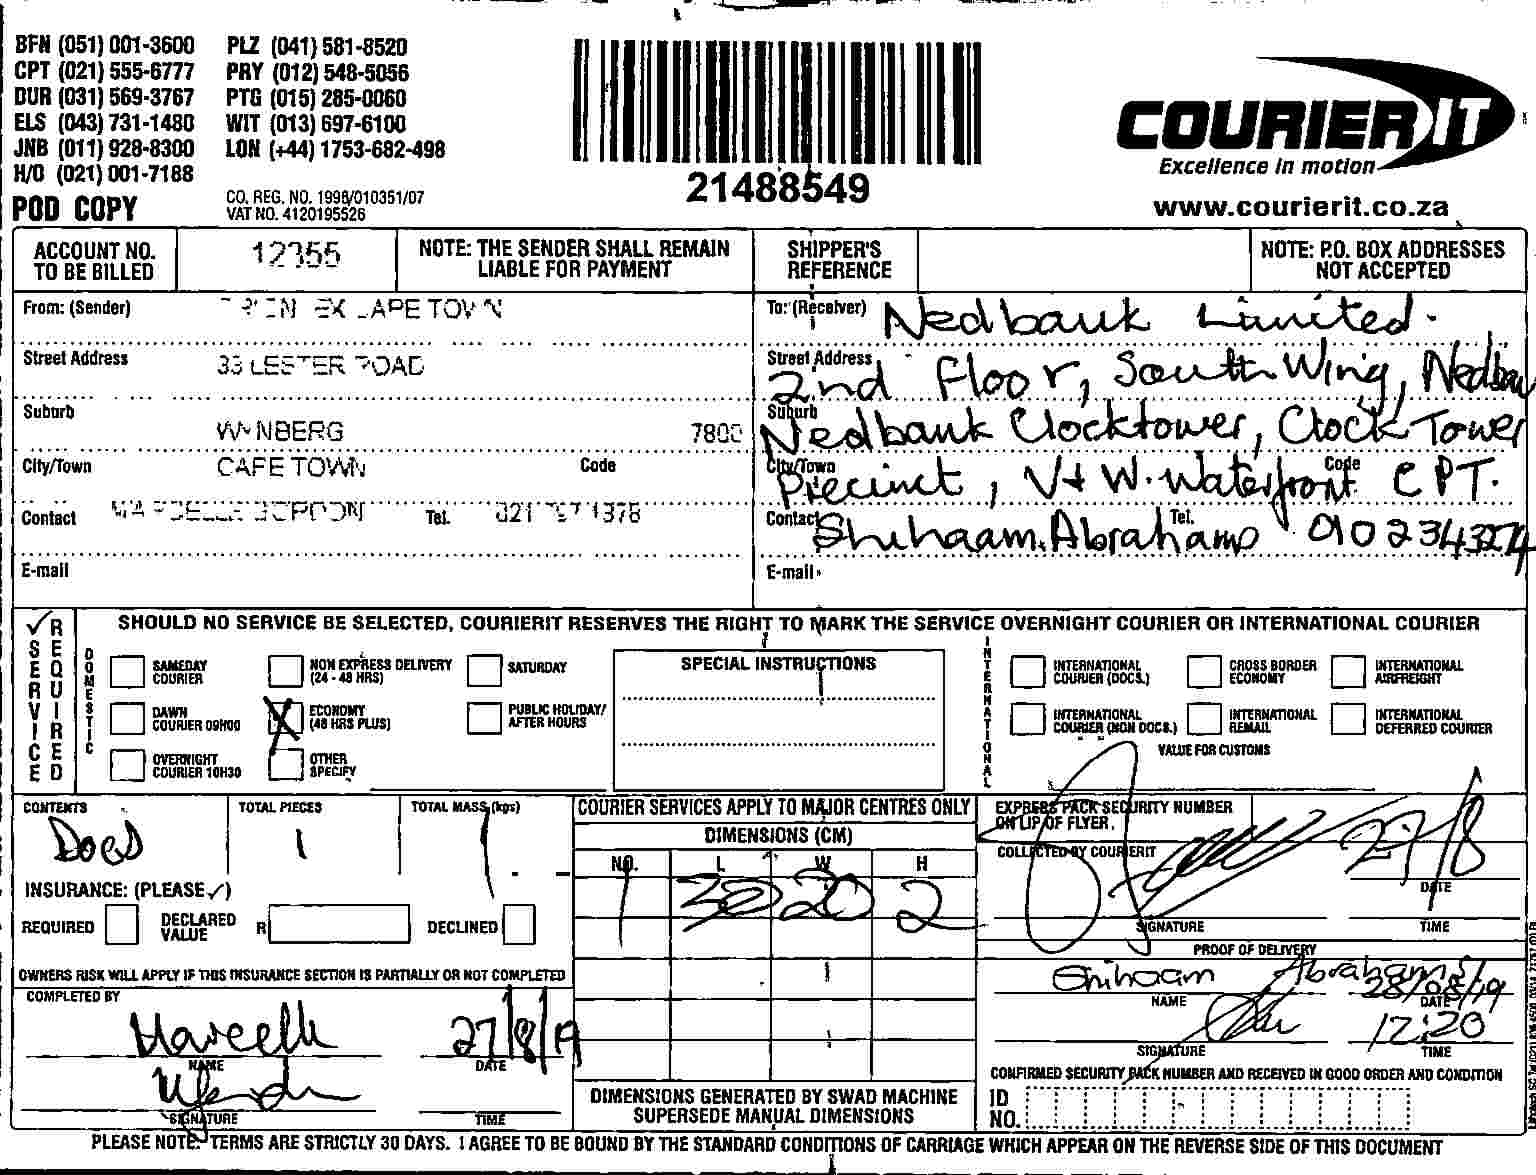 BFN (051) 001-3600 PLZ (041) 581-8520
CPT (021) 555-6777 PRY (012) 548-5056
DUR (031) 569-3767 PTG (015) 285-0060
ELS (043) 731-1480 WIT (013) 697-6100
JNB (011) 928-8300 LON (+44) 1753-682-498
H/O (021) 001-7188
POD COPY
CO. REG. NO. 1998/010351/07
VAT NO. 4120195526
21488549
COURIER IT
Excellence in motion
www.courierit.co.za
ACCOUNT NO. TO BE BILLED
12355
NOTE: THE SENDER SHALL REMAIN LIABLE FOR PAYMENT
SHIPPER'S REFERENCE
NOTE: P.O. BOX ADDRESSES NOT ACCEPTED
From: (Sender) CAPE TOWN
Street Address 33 LESTER ROAD
Suburb WYNBERG 7800
City/Town CAPE TOWN Code
Contact MARCELLE GORDON Tel. 1378
E-mail
To: (Receiver) Nedbank Limited.
Street Address 2nd Floor, South Wing, Nedban
Suburb Nedbank Clocktower, Clock Tower
City/Town Precinct, V+W. Waterfront Code CPT.
Contact Shihaam Abrahams Tel. 010 2343274
E-mail
SERVICE REQUIRED
SHOULD NO SERVICE BE SELECTED, COURIERIT RESERVES THE RIGHT TO MARK THE SERVICE OVERNIGHT COURIER OR INTERNATIONAL COURIER
DOMESTIC
SAMEDAY COURIER
NON EXPRESS DELIVERY (24 - 48 HRS)
SATURDAY
DAWN COURIER 09H00
X ECONOMY (48 HRS PLUS)
PUBLIC HOLIDAY/ AFTER HOURS
OVERNIGHT COURIER 10H30
OTHER SPECIFY
SPECIAL INSTRUCTIONS
INTERNATIONAL
INTERNATIONAL COURIER (DOCS.)
CROSS BORDER ECONOMY
INTERNATIONAL AIRFREIGHT
INTERNATIONAL COURIER (NON DOCS.)
INTERNATIONAL REMAIL
INTERNATIONAL DEFERRED COURIER
VALUE FOR CUSTOMS
CONTENTS Docs
TOTAL PIECES 1
TOTAL MASS (kgs) 1
INSURANCE: (PLEASE ✓)
REQUIRED DECLARED VALUE R DECLINED
OWNERS RISK WILL APPLY IF THIS INSURANCE SECTION IS PARTIALLY OR NOT COMPLETED
COMPLETED BY
Marcelle 27/8/19
NAME DATE
SIGNATURE TIME
COURIER SERVICES APPLY TO MAJOR CENTRES ONLY
DIMENSIONS (CM)
NO. L W H
1 30 20 2
DIMENSIONS GENERATED BY SWAD MACHINE SUPERSEDE MANUAL DIMENSIONS
EXPRESS PACK SECURITY NUMBER ON LIP OF FLYER.
COLLECTED BY COURIERIT
27/8
DATE
SIGNATURE TIME
PROOF OF DELIVERY
Shihaam Abrahams 28/08/19
NAME DATE
12:20
SIGNATURE TIME
CONFIRMED SECURITY PACK NUMBER AND RECEIVED IN GOOD ORDER AND CONDITION
ID NO.
PLEASE NOTE: TERMS ARE STRICTLY 30 DAYS. I AGREE TO BE BOUND BY THE STANDARD CONDITIONS OF CARRIAGE WHICH APPEAR ON THE REVERSE SIDE OF THIS DOCUMENT